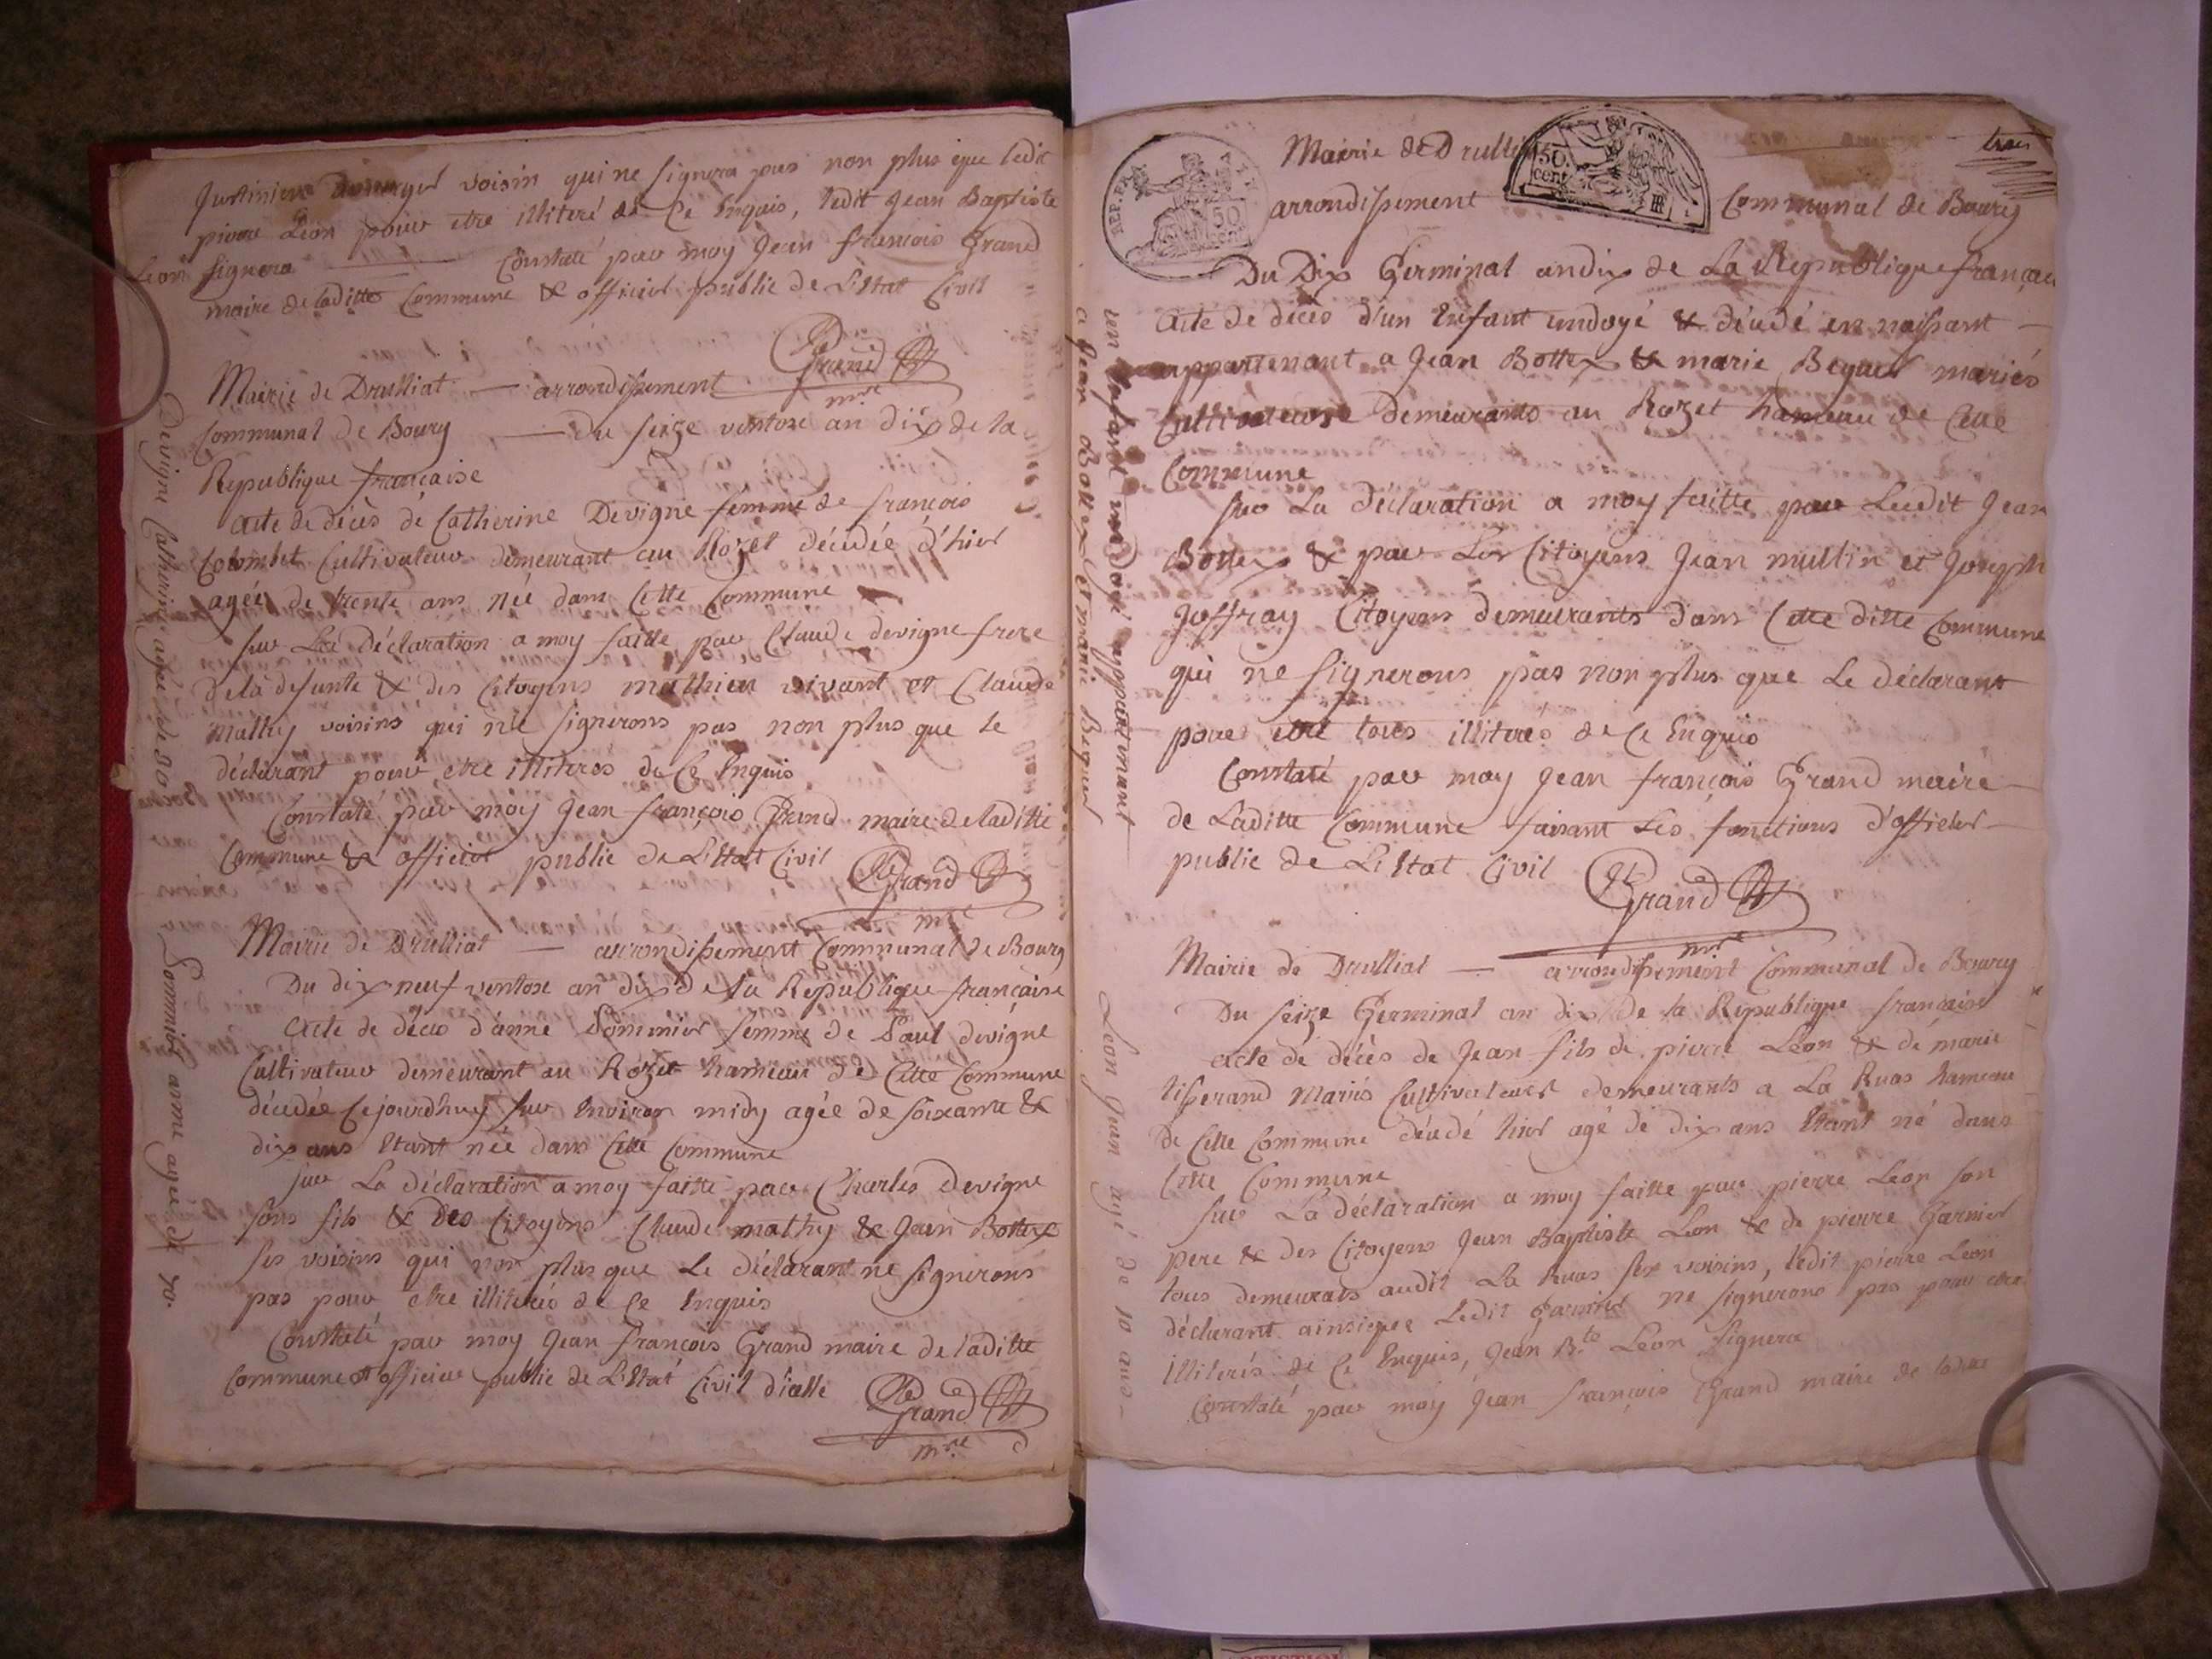 voisin qui ne signera pas non plus que ledit
pierre Leon pour etre illiteré de Ce Enquis, ledit Jean Baptiste
Leon signera Constaté par moy Jean francois Grand
maire de laditte Commune & officier public de L'Etat Civil
Grand
mre
Mairie de Drulliat — arrondissement
Communal de Bourg — du seize ventose an dix de la
Republique française
acte de décès de Catherine Devigne femme de francois
Colombet Cultivateur demeurant au Rozet décédée d'hier
agée de trente ans née dans Cette Commune
sur La déclaration a moy faitte par Claude devigne frere
de la defunte & des Citoyens mathieu vivant et Claude
mathy voisins qui ne signerons pas non plus que le
déclarant pour etre illiterés de Ce Enquis
Constaté par moy Jean françois Grand maire de laditte
Commune & officier public de L'Etat Civil Grand
mre
Devigne Catherine agée de 30
Mairie de Drulliat — arrondissement Communal de Bourg
Du dix neuf ventose an dix de la Republique française
Acte de décès d'anne Sommier femme de Paul devigne
Cultivateur demeurant au Rozet hameau de Cette Commune
décédée Cejourdhuy sur Environ midy agée de soixante &
dix ans Etant née dans Cette Commune
sur La déclaration a moy faitte par Charles Devigne
sons fils & des Citoyens Claude mathy & Jean Bottex
ses voisins qui non plus que Le déclarant ne signerons
pas pour etre illiterés de Ce Enquis
Constaté par moy Jean François Grand maire de laditte
Commune et officier public de L'Etat Civil d'icelle Grand
mre
Sommier anne agée de 70.
REP. FRA.
50
cent
50.
cent
Mairie de Drulliat
trois
arrondissement Communal de Bourg
Du Dix Germinal an dix de La Republique française
Acte de décès d'un Enfant undoyé & décédé en naissant —
appartenant a Jean Bottex & marie Beguet mariés
Cultivateurs demeurants au Rozet hameau de Cette
Commune
sur La déclaration a moy faitte par Ledit Jean
Bottex & par Les Citoyens Jean mullin et Joseph
Joffray Citoyens demeurants dans Cette ditte Commune
qui ne signerons pas non plus que Le déclarant
pour etre tous illiterés de Ce Enquis
Constaté par moy Jean françois Grand maire —
de Laditte Commune faisant Les fonctions d'officier —
public de L'Etat Civil Grand
mre
un Enfant undoyé appartenant —
a Jean Bottex et marie Beguet
Mairie de Drulliat — arrondissement Communal de Bourg
Du seize Germinal an dix de la Republique française
acte de décès de Jean fils de pierre Leon & de marie
tisserand Mariés Cultivateurs demeurants a La Ruas hameau
de Cette Commune décédé hier agé de dix ans Etant né dans
Cette Commune
sur La déclaration a moy faitte par pierre Leon son
pere & des Citoyens Jean Baptiste Leon & de pierre Garnier
tous demeurats audit La Ruas ses voisins, ledit pierre Leon
déclarant ainsique Ledit Garnier ne signerons pas pour etre
illiterés de Ce Enquis, Jean Bte Leon signera
Constaté par moy Jean françois Grand maire de laditte
Leon Jean agé de 10 ans —